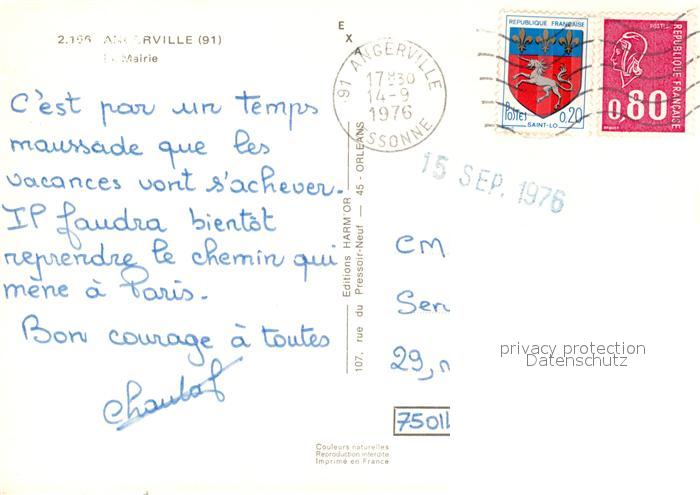 2.166 ANGERVILLE (91)
La Mairie
C'est par un temps
maussade que les
vacances vont s'achever.
Il faudra bientôt
reprendre le chemin qui
mène à Paris.
Bon courage à toutes
Chantal
EXA
Editions HARM'OR
107, rue du Pressoir-Neuf — 45 - ORLEANS
Couleurs naturelles
Reproduction interdite
Imprimé en France
91 ANGERVILLE
17H30
14-9
1976
ESSONNE
REPUBLIQUE FRANÇAISE
Postes
0,20
SAINT-LO
POSTES
0,80
REPUBLIQUE FRANÇAISE
15 SEP. 1976
CM
Ser
29,
7501
privacy protection
Datenschutz